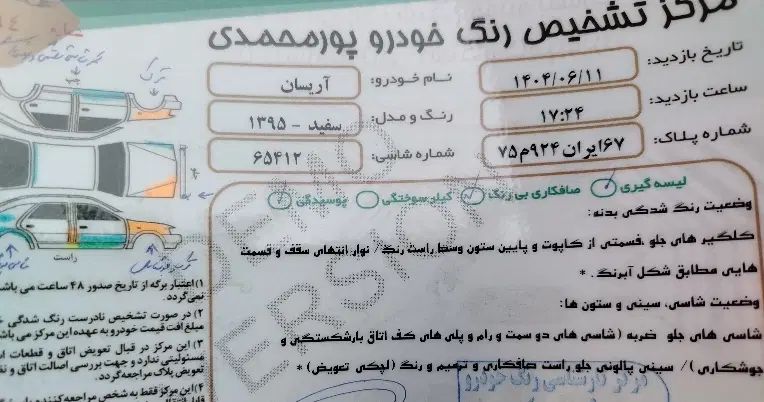 مرکز تشخیص رنگ خودرو پورمحمدی
تاریخ بازدید: ۱۴۰۴/۰۶/۱۱
نام خودرو: آریسان
ساعت بازدید: ۱۷:۲۴
رنگ و مدل: سفید - ۱۳۹۵
شماره پلاک: ۶۷ایران ۹۲۴م۷۵
شماره شاسی: ۶۵۴۱۲
لیسه گیری صافکاری بی رنگ کیلر سوختگی پوسیدگی
وضعیت رنگ شدگی بدنه:
گلگیر های جلو .قسمتی از کاپوت و پایین ستون وسط راست رنگ/ نوار انتهای سقف و قسمت
هایی مطابق شکل آبرنگ. *
وضعیت شاسی، سینی و ستون ها:
شاسی های جلو ضربه (شاسی های دو سمت و رام و پلی های کف اتاق بازشکستگی و
جوشکاری)/ سینی پالونی جلو راست صافکاری و ترمیم و رنگ (لچکی تعویض) *
راست
۱)اعتبار برگه از تاریخ صدور ۴۸ ساعت می باشد
نمی‌گردد.
۲) در صورت تشخیص نادرست رنگ شدگی
مبلغ افت قیمت خودرو به عهده این مرکز می باشد
۳) این مرکز در قبال تعویض اتاق و قطعات
مسئولیتی ندارد و جهت بررسی اصالت اتاق و
تعویض پلاک مراجعه گردد.
۴)این مرکز فقط به شخص مراجعه کننده
مرکز کارشناسی رنگ خودرو
DEMO VERSION